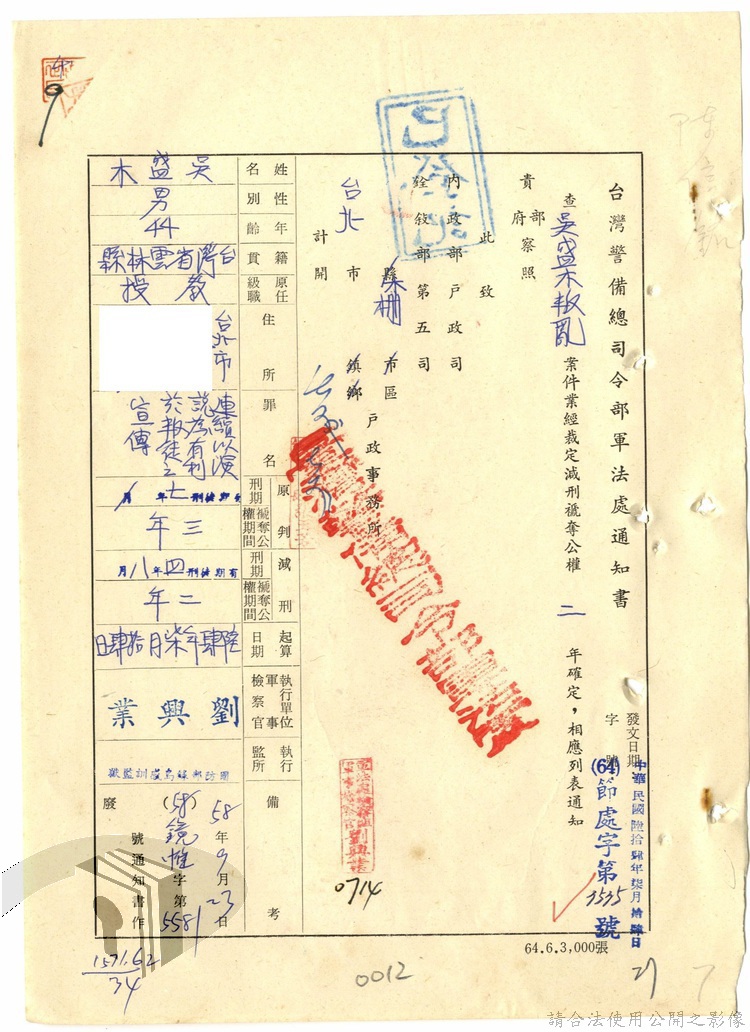 台灣警備總司令部軍法處通知書
發文日期
字號
中華民國陸拾肆年柒月拾肆日
(64)節處字第3535號
查吳盛木叛亂案件業經裁定減刑褫奪公權二年確定，相應列表通知
貴部府察照
此致
內政部戶政司
銓敘部第五司
台北市縣木柵市區鎮鄉戶政事務所
計開
姓名
吳盛木
性別
男
年齡
44
籍貫
台灣省雲林縣
原任級職
教授
住所
台北市
罪名
連續以演說為有利於叛徒之宣傳
原判
刑期
有期徒刑七年月
褫奪公權期間
三年
減刑
刑期
有期徒刑四年八月
褫奪公權期間
二年
起算日期
陸肆年柒月拾肆日
執行單位軍事檢察官
劉興業
執行監所
國防部綠島感訓監獄
備考
58年9月23日
(58)鏡惟字第5581號通知書作廢
已登註
0714
64.6.3,000張
0012
1571.62
34
21
7
9
請合法使用公開之影像